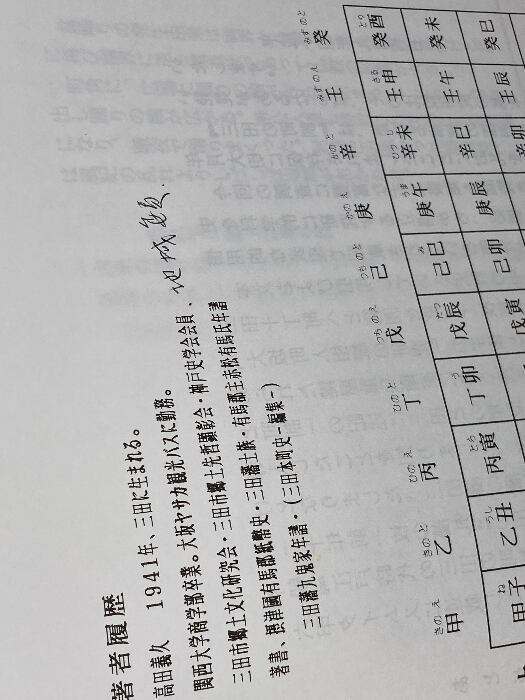 著者履歴
高田義久　1941年、三田に生まれる。
関西大学商学部卒業。大阪ヤサカ観光バスに勤務。
三田市郷土文化研究会・三田市郷土先哲顕彰会・神戸史学会会員．地域
著書、摂津国有馬郡紙幣史・三田藩士族・有馬郡主赤松有馬氏年譜
三田藩九鬼家年譜・(三田本町史－編集－)
きのえ きのと ひのえ ひのと つちのえ つちのと かのえ かのと みずのえ みずのと
甲 乙 丙 丁 戊 己 庚 辛 壬 癸
ね うし とら う たつ み うま ひつじ さる とり
甲子 乙丑 丙寅 丁卯 戊辰 己巳 庚午 辛未 壬申 癸酉
戊寅 己卯 庚辰 辛巳 壬午 癸未
辛卯 壬辰 癸巳